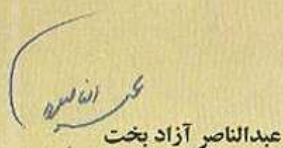 عبدالناصر آزاد بخت